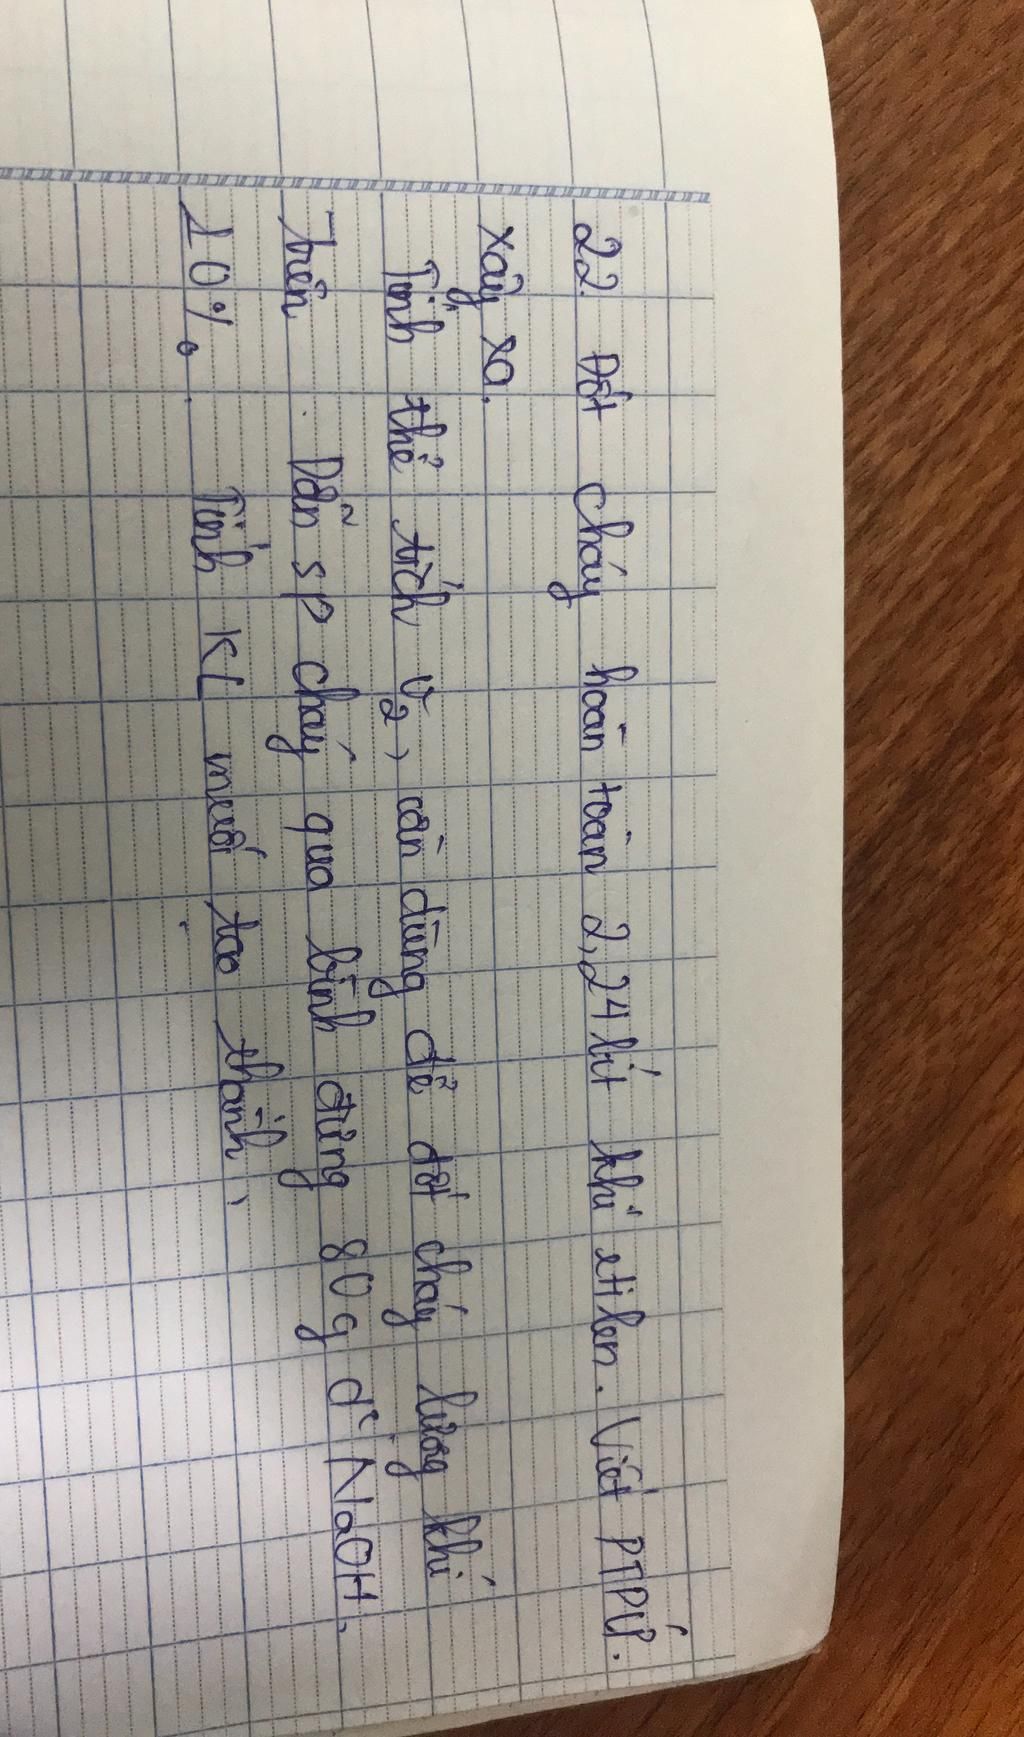 22. Đốt cháy hoàn toàn 2,24 lít khí etilen. Viết PTPƯ.
xảy ra.
Tính thể tích O2, cần dùng để đốt cháy lượng khí
trên. Dẫn sp cháy qua bình đựng 80g d² NaOH,
10%. Tính KL muối tạo thành.